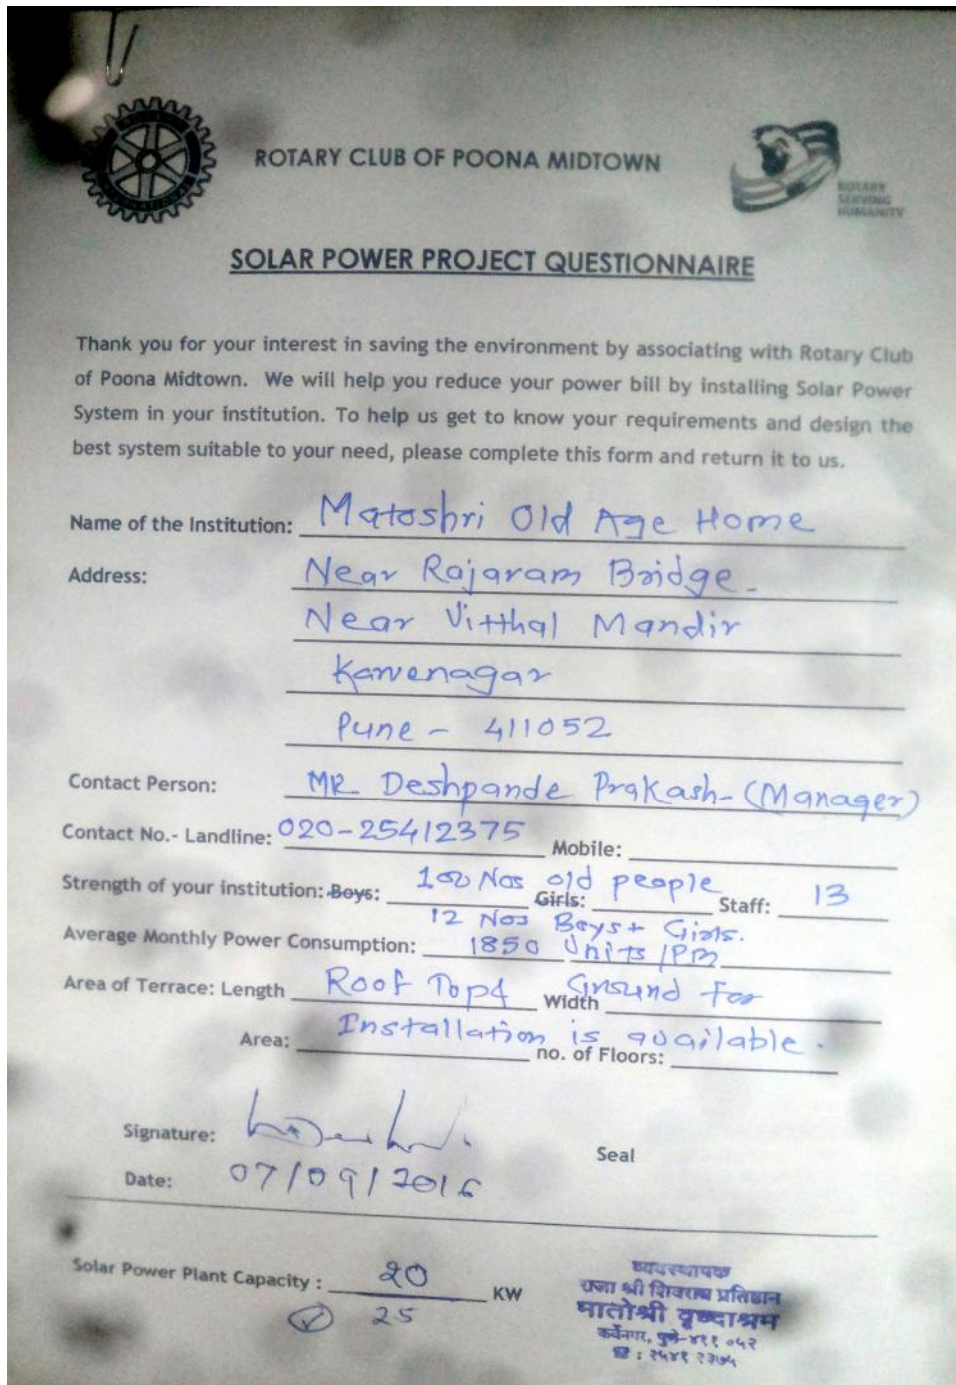 ROTARY CLUB OF POONA MIDTOWN
ROTARY
SERVING
HUMANITY
SOLAR POWER PROJECT QUESTIONNAIRE
Thank you for your interest in saving the environment by associating with Rotary Club
of Poona Midtown. We will help you reduce your power bill by installing Solar Power
System in your institution. To help us get to know your requirements and design the
best system suitable to your need, please complete this form and return it to us.
Name of the Institution: Matoshri Old Age Home
Address: Near Rajaram Bridge
Near Vitthal Mandir
Karvenagar
Pune - 411052
Contact Person: MR Deshpande Prakash - (Manager)
Contact No.- Landline: 020-25412375 Mobile:
Strength of your institution: Boys: 100 Nos old people Girls: Staff: 13
12 Nos Boys + Girls.
Average Monthly Power Consumption: 1850 Units/PM
Area of Terrace: Length Roof Top & Width Ground For
Area: Installation is available. no. of Floors:
Signature:
Seal
Date: 07/09/2016
Solar Power Plant Capacity : 20 KW
25
व्यवस्थापक
राजा श्री शिवराय प्रतिष्ठान
मातोश्री वृध्दाश्रम
कर्वेनगर, पुणे-४११ ०५२
☎ : २५४१ २३७५